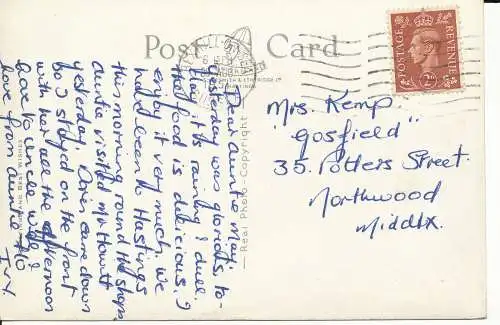 Post Card
Dear Auntie May,
Yesterday was glorious, to-
day its raining & dull.
the food is delicious. I
enjoy it very much. We
had been to Hastings
this morning round the shops.
Auntie visited Mr Howitt
yesterday. Over came down
so I stayed on the front
with her all the afternoon
love to Uncle Will &
love from Auntie Flo
Ivy.
Real Photo-Copyright
POSTAGE
REVENUE
Mrs. Kemp.
"Gosfield"
35, Potters Street.
Northwood
Middlx.